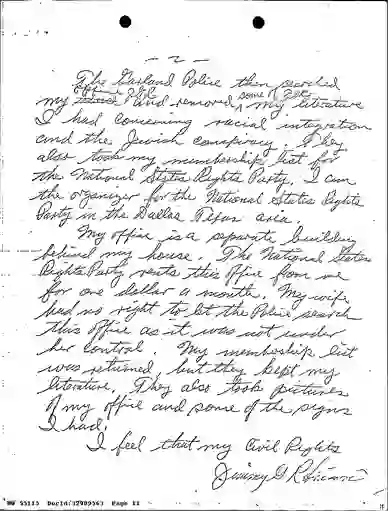 - 2 -
The Garland Police then searched
office JGR some of JGR
my and removed my literature
I had concerning racial integration
and the Jewish conspiracy. They
also took my membership list for
the National States Rights Party. I am
the organizer for the National States Rights
Party in the Dallas Texas area.
My office is a separate building
behind my house. The National States
Rights Party rents this office from me
for one dollar a month. My wife
had no right to let the Police search
this office as it was not under
her control. My membership list
was returned, but they kept my
literature. They also took pictures
of my office and some of the signs
I had.
I feel that my Civil Rights
Jimmy G. Robinson
Page 11